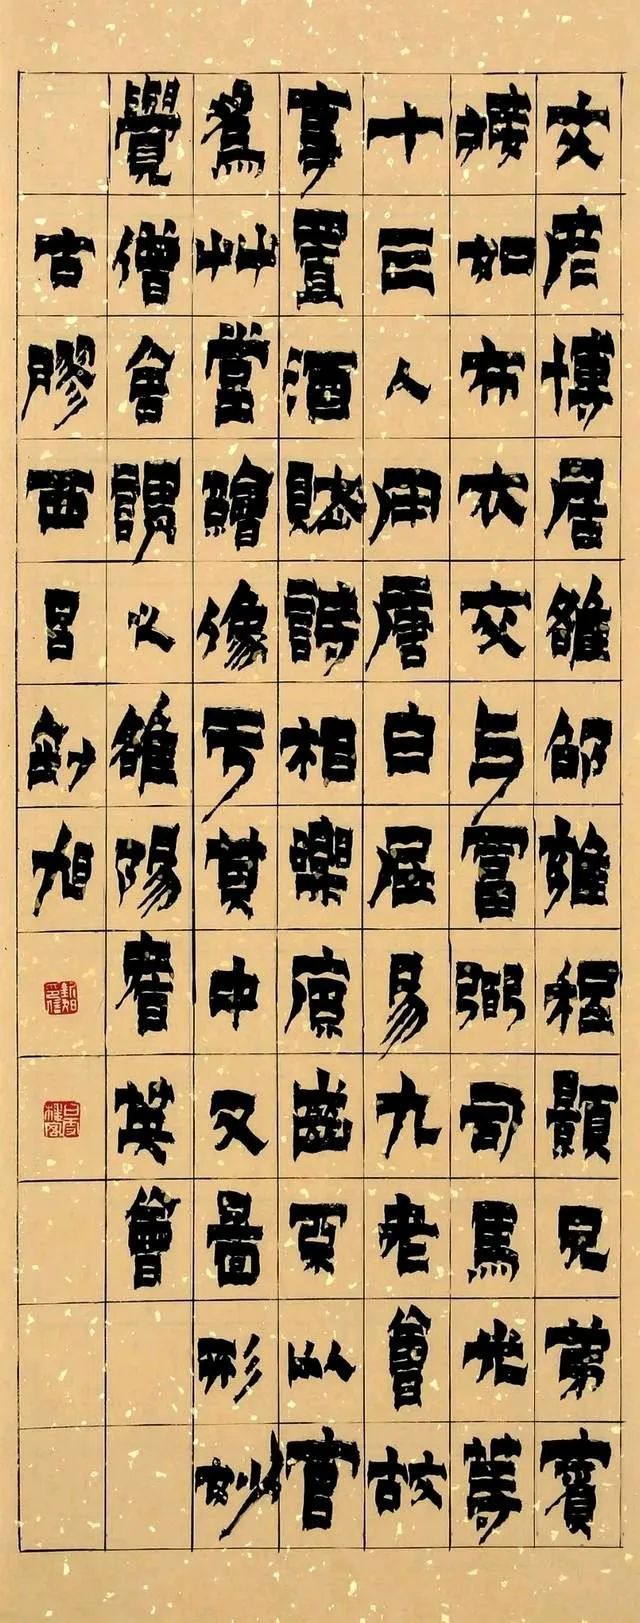 文彦博居雒邵雍程顥兄弟賓
接如布衣交与富弼司馬光等
十三人用唐白居易九老會故
事置酒賦詩相樂齒以
為艸堂繪像于其中又圖形妙
覺僧舍謂雒陽耆英會
古膠西呂旭